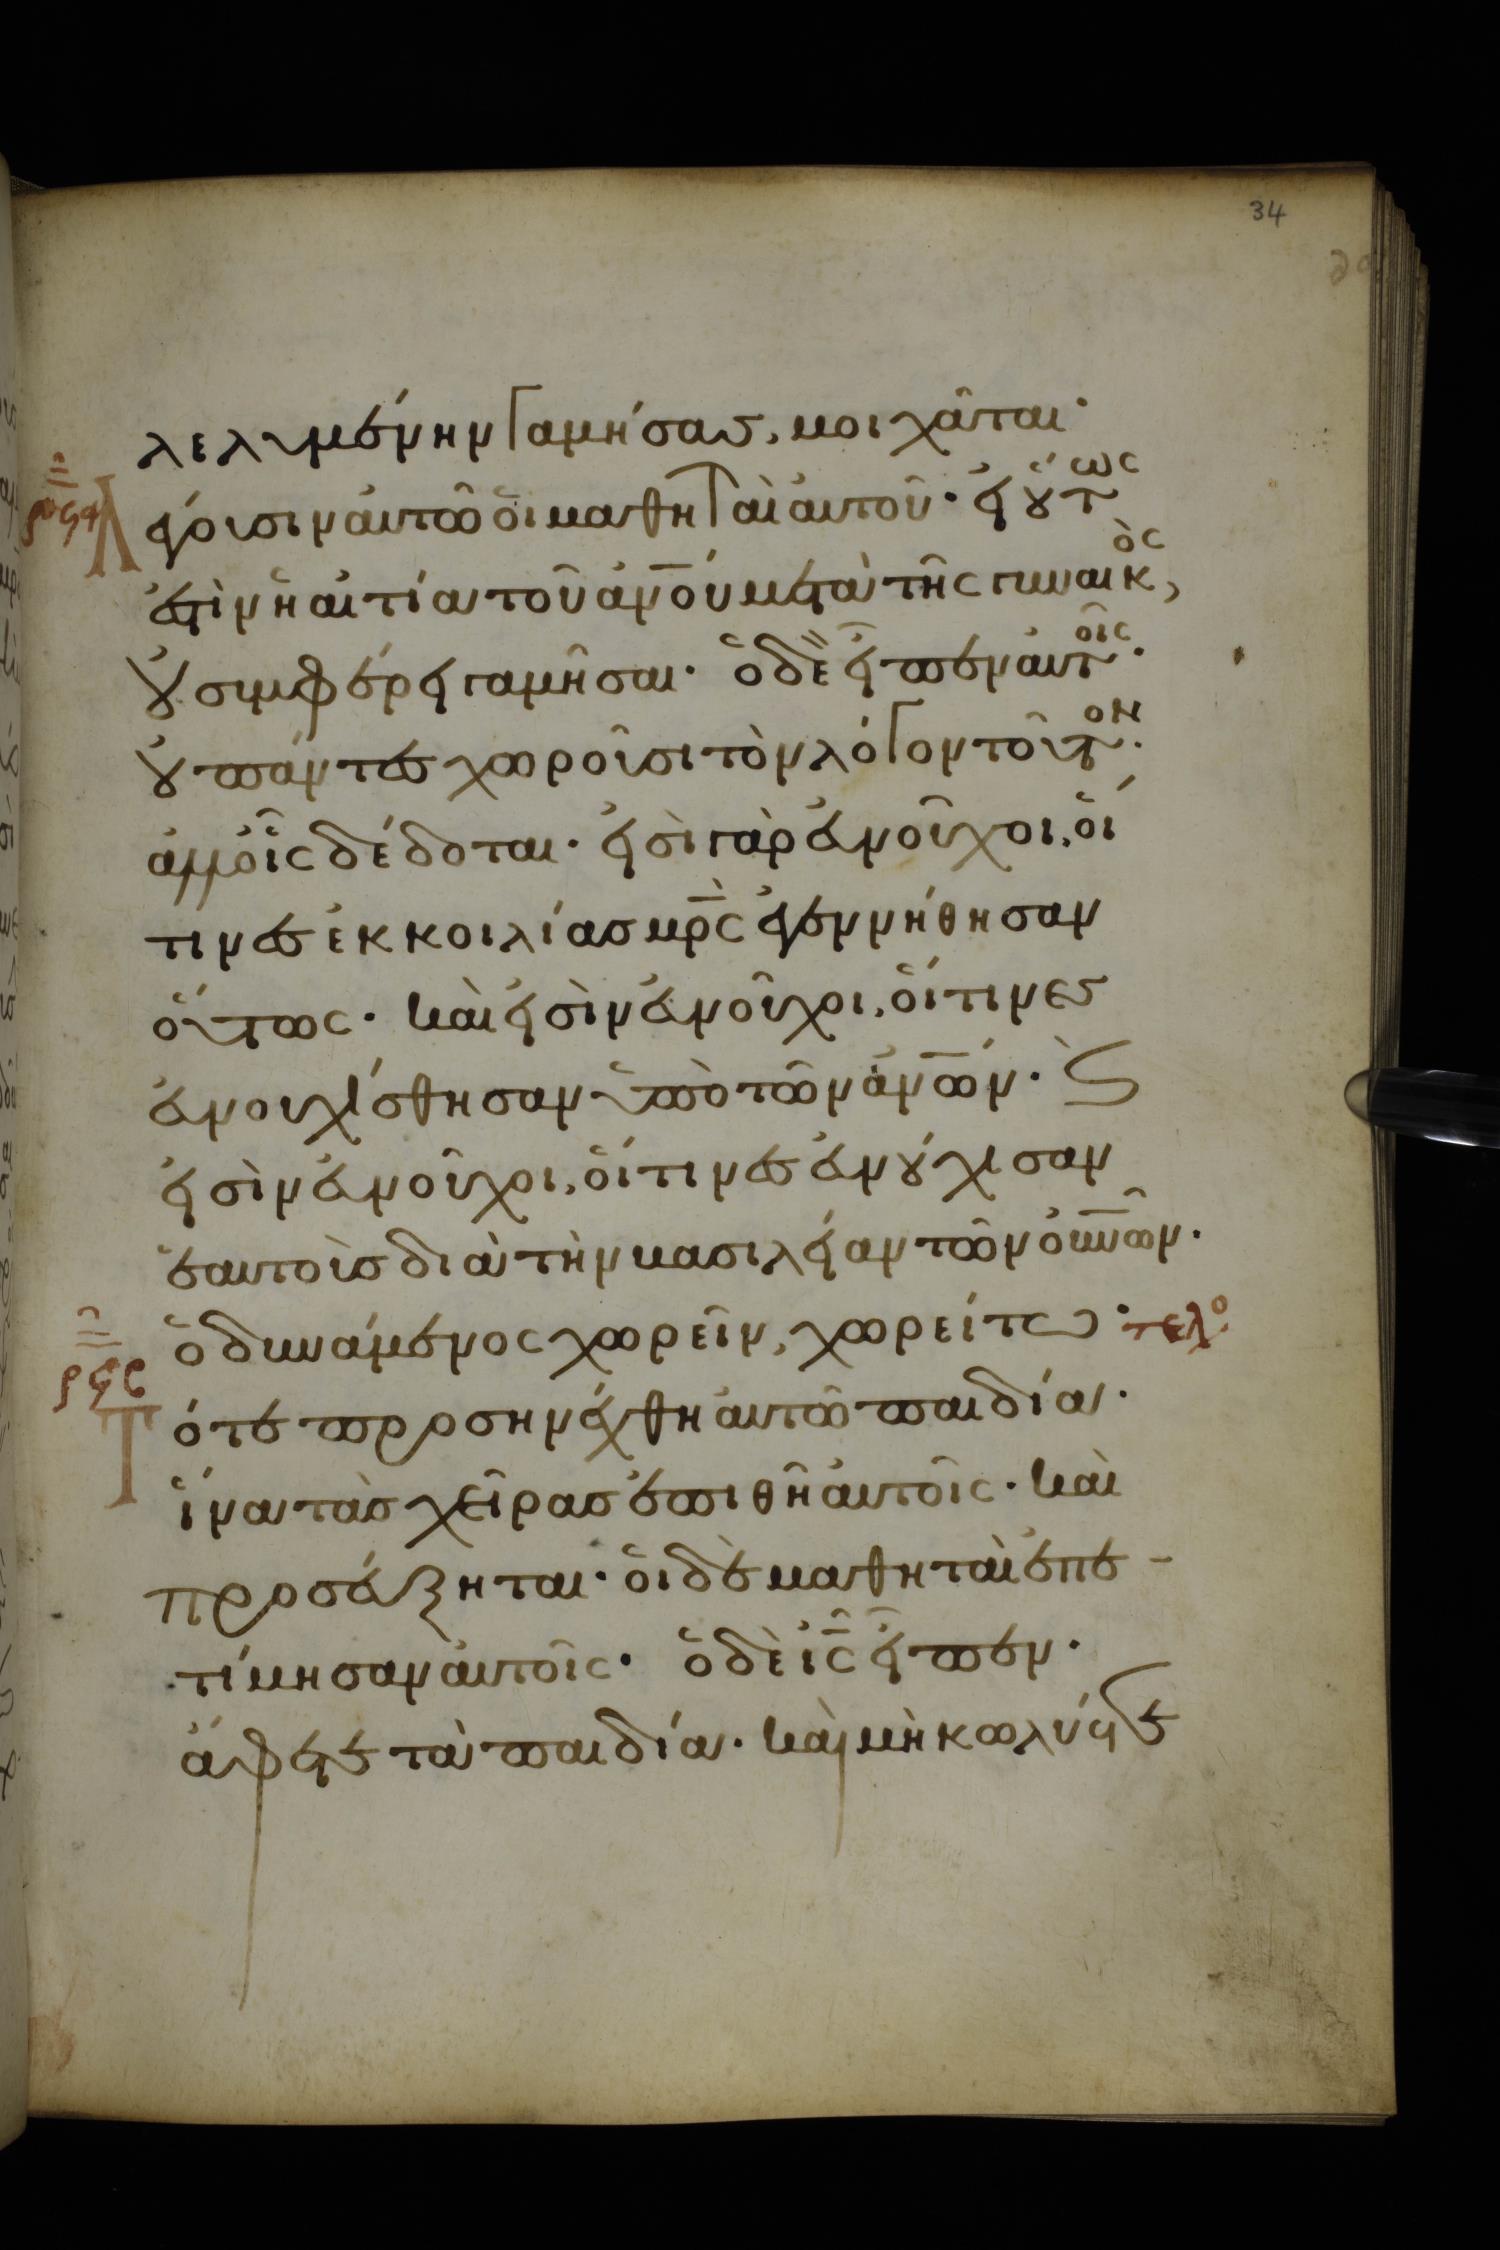 34
λελυμένην γαμήσας, μοιχᾶται·
Λέγουσιν αὐτῶ οἱ μαθηταὶ αὐτοῦ· εἰ οὕτως
ἐστὶν ἡ αἰτία τοῦ ἀν̅ο̅ύ μετὰ τῆς γυναικὸς,
οὐ συμφέρει γαμῆσαι· ὁ δὲ εἶπεν αὐτοῖς·
οὐ πάντες χωροῦσι τὸν λόγον τοῦτον·
ἀλλ' οἷς δέδοται· εἰσὶ γὰρ εὐνοῦχοι, οἵ
τινες ἐκ κοιλίας μ̅ρ̅ς ἐγεννήθησαν
οὕτως· καὶ εἰσὶν εὐνοῦχοι, οἵτινες
εὐνουχίσθησαν ὑπὸ τῶν ἀν̅ω̅ν· ϗ
εἰσὶν εὐνοῦχοι, οἵτινες εὐνούχισαν
ἑαυτοὺς διὰ τὴν βασιλείαν τῶν οὐ̅ν̅ω̅ν·
ὁ δυνάμενος χωρεῖν, χωρείτω· τελο
ρϟε
Τότε προσηνέχθη αὐτῶ παιδία·
ἵνα τὰς χεῖρας ἐπιθῆ αὐτοῖς· καὶ
προσεύξηται· οἱ δὲ μαθηταὶ ἐπε-
τίμησαν αὐτοῖς· ὁ δὲ ἰ̅ς εἶπεν·
ἄφετε τὰ παιδία· καὶ μὴ κωλύετε